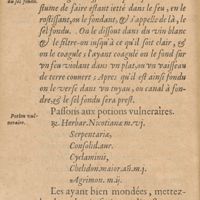 du sel fondu.
sume de faire estant ietté dans le feu, en le
rostissant, ou le fondant, & s'appelle de là, le
sel fondu. On le dissout dans du vin blanc
& le filtre-on iusqu'à ce qu'il soit clair, &
on le coagule; l'ayant coagulé on le fond sur
vn feu violant dans vn plat, ou vn vaisseau
de terre couuert; Apres qu'il est ainsi fondu
on le verse dans vn tuyau, ou canal à fon-
dre, & le sel fondu sera prest.
Potion vul-
neraire.
Passons aux potions vulneraires.
℞. Herbar. Nicotianæ m. vj.
Serpentariæ,
Consolid. aur.
Cyclaminis,
Chelidon. maior. añ. m. j.
Agrimon. m. ij.
Les ayant bien mondées, mettez-